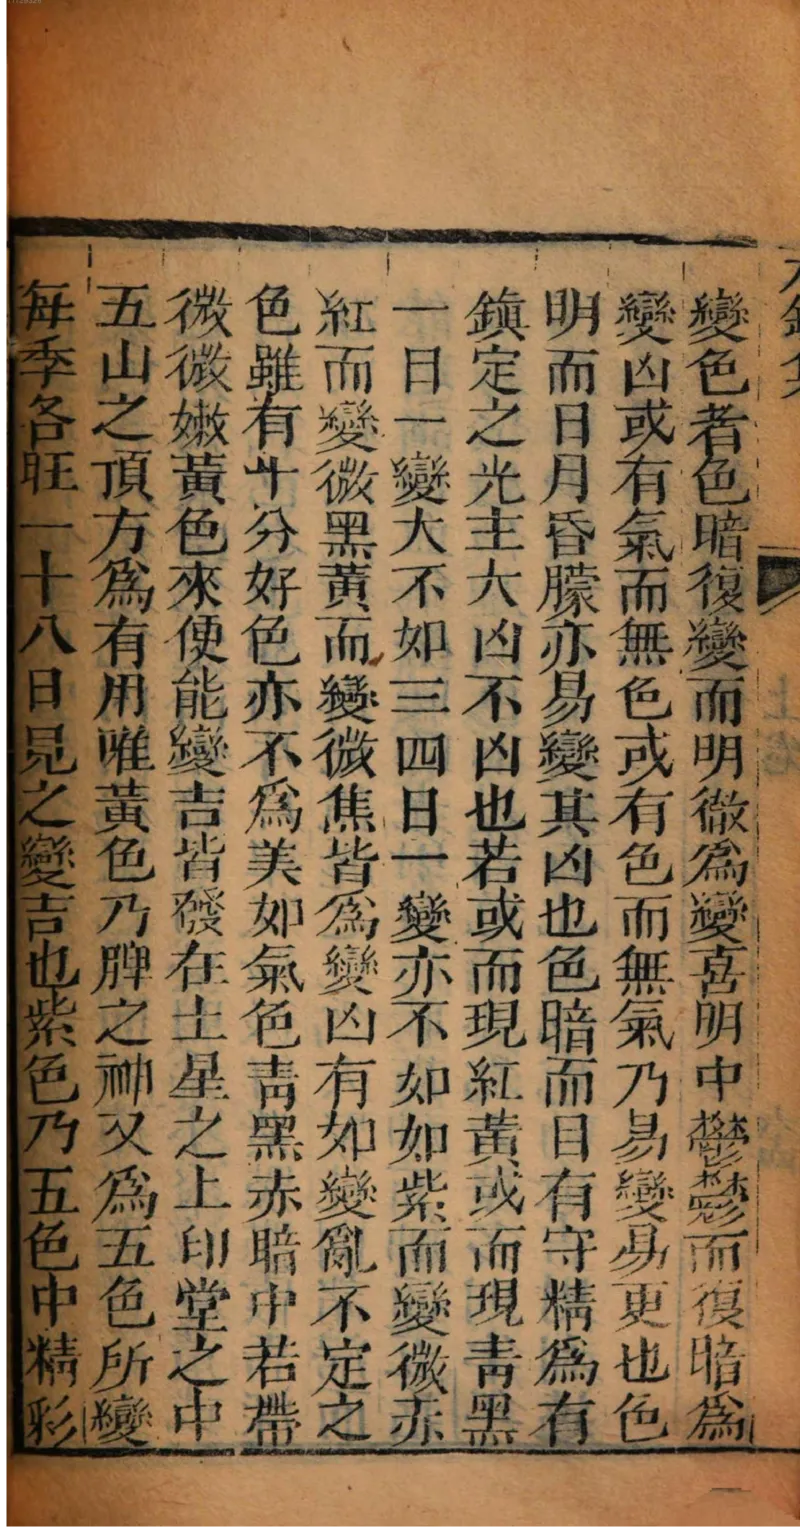 變色者色暗復變而明徹爲變喜明中鬱鬱而復暗爲
變凶或有氣而無色或有色而無氣乃易變易更也色
明而日月昏朦亦易變其凶也色暗而目有守精爲有
鎮定之光主大凶不凶也若或而現紅黃或而現靑黑
一日一變大不如三四日一變亦不如如紫而變微赤
紅而變微黑黃而變微焦皆爲變凶有如變亂不定之
色雖有十分好色亦不爲美如氣色靑黑赤暗中若帶
微微嫩黃色來便能變吉皆發在土星之上印堂之中
五山之頂方爲有用唯黃色乃脾之神又爲五色所變
每季各旺一十八日見之變吉也紫色乃五色中精彩